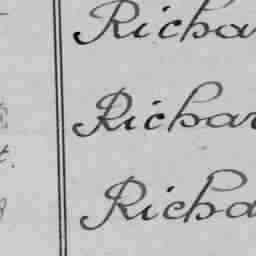 Richa
Richar
Richa